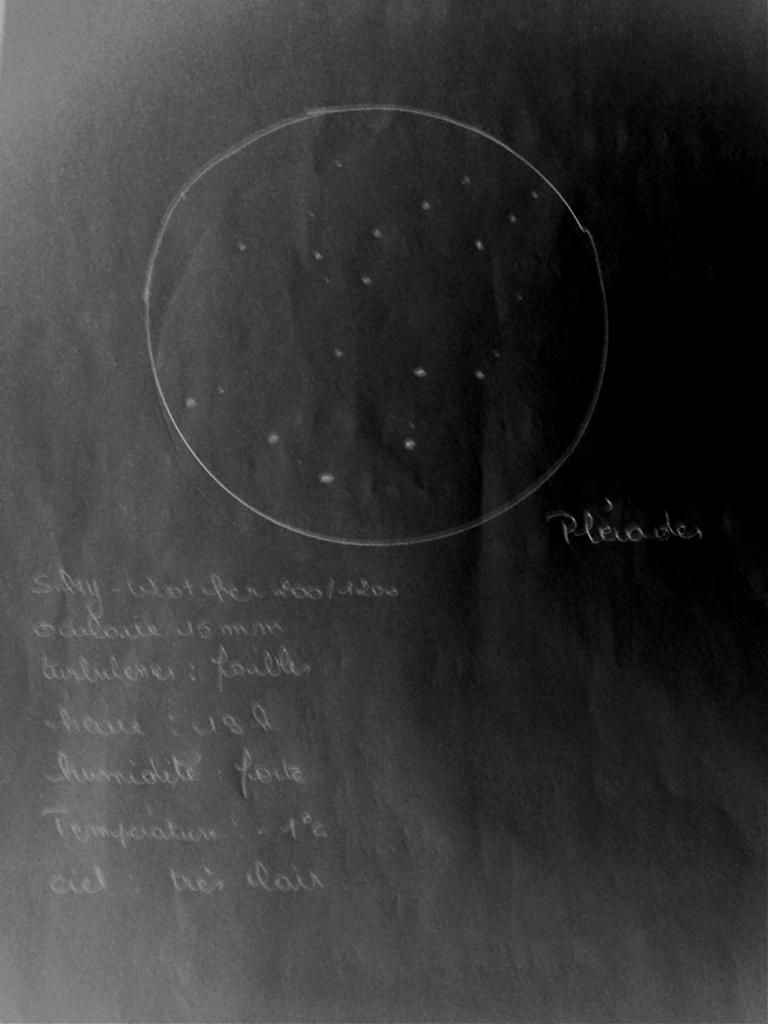 Pléiades
Sky-Watcher 200/1200
oculaire 15 mm
turbulences : faibles
heure : 18 h
humidité : forte
Température : -1°c
ciel : très clair